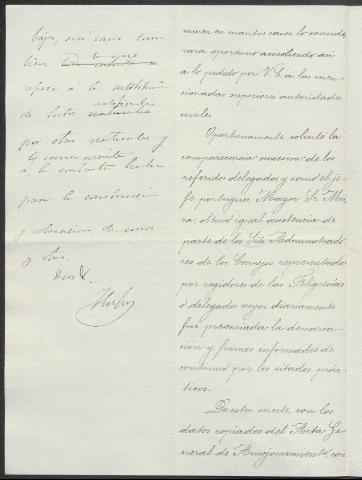 bajos, así como tam
bien lo que
refiere á la sustitución
de hitos artificiales
por otros naturales y
lo concerniente
á la consulta hecha
para la construcción
y colocación de unos
y otros.
Dios V.
mismo en cuantos casos lo conside
rara oportuno accediendo así
a lo pedido por V.E. a las men
cionadas superiores autoridades
civiles.
Oportunamente solicité la
comparecencia sucesiva de los
referidos delegados y como el je
fe portugues, Mayor Sr. Mou
ra, obtuvo igual asistencia de
parte de los Srs. Administrado
res de los Concejos, representados
por regidores de las Feligresias
ó delegados suyos diariamente
fué presenciada la demarca
cion y fuimos informados de
continuo por los citados prác
ticos.
De esta suerte, con los
datos copiados del Acta Ge
neral de Amojonamiento, con